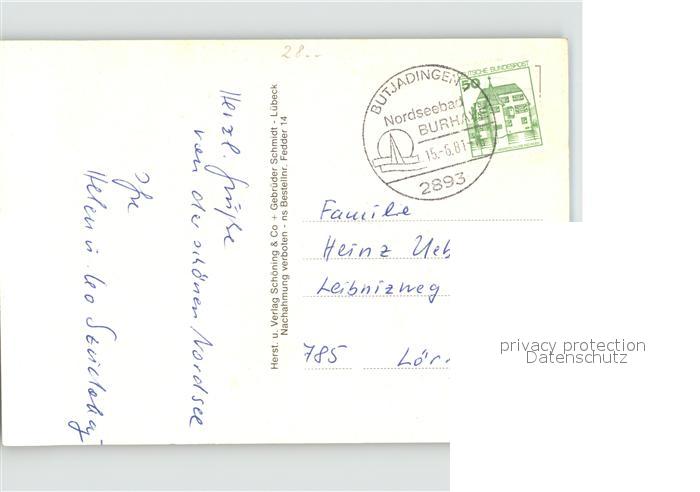 28.--
Herzl. Grüße
von der schönen Nordsee
Ihre
Helen u. Leo
Herst. u. Verlag Schöning & Co + Gebrüder Schmidt - Lübeck
Nachahmung verboten - ns Bestellnr. Fedder 14
BUTJADINGEN
Nordseebad
BURHAVE
15.-6.81
2893
50
DEUTSCHE BUNDESPOST
Familie
Heinz Ueb
Leibnizweg
785 Lör
privacy protection
Datenschutz